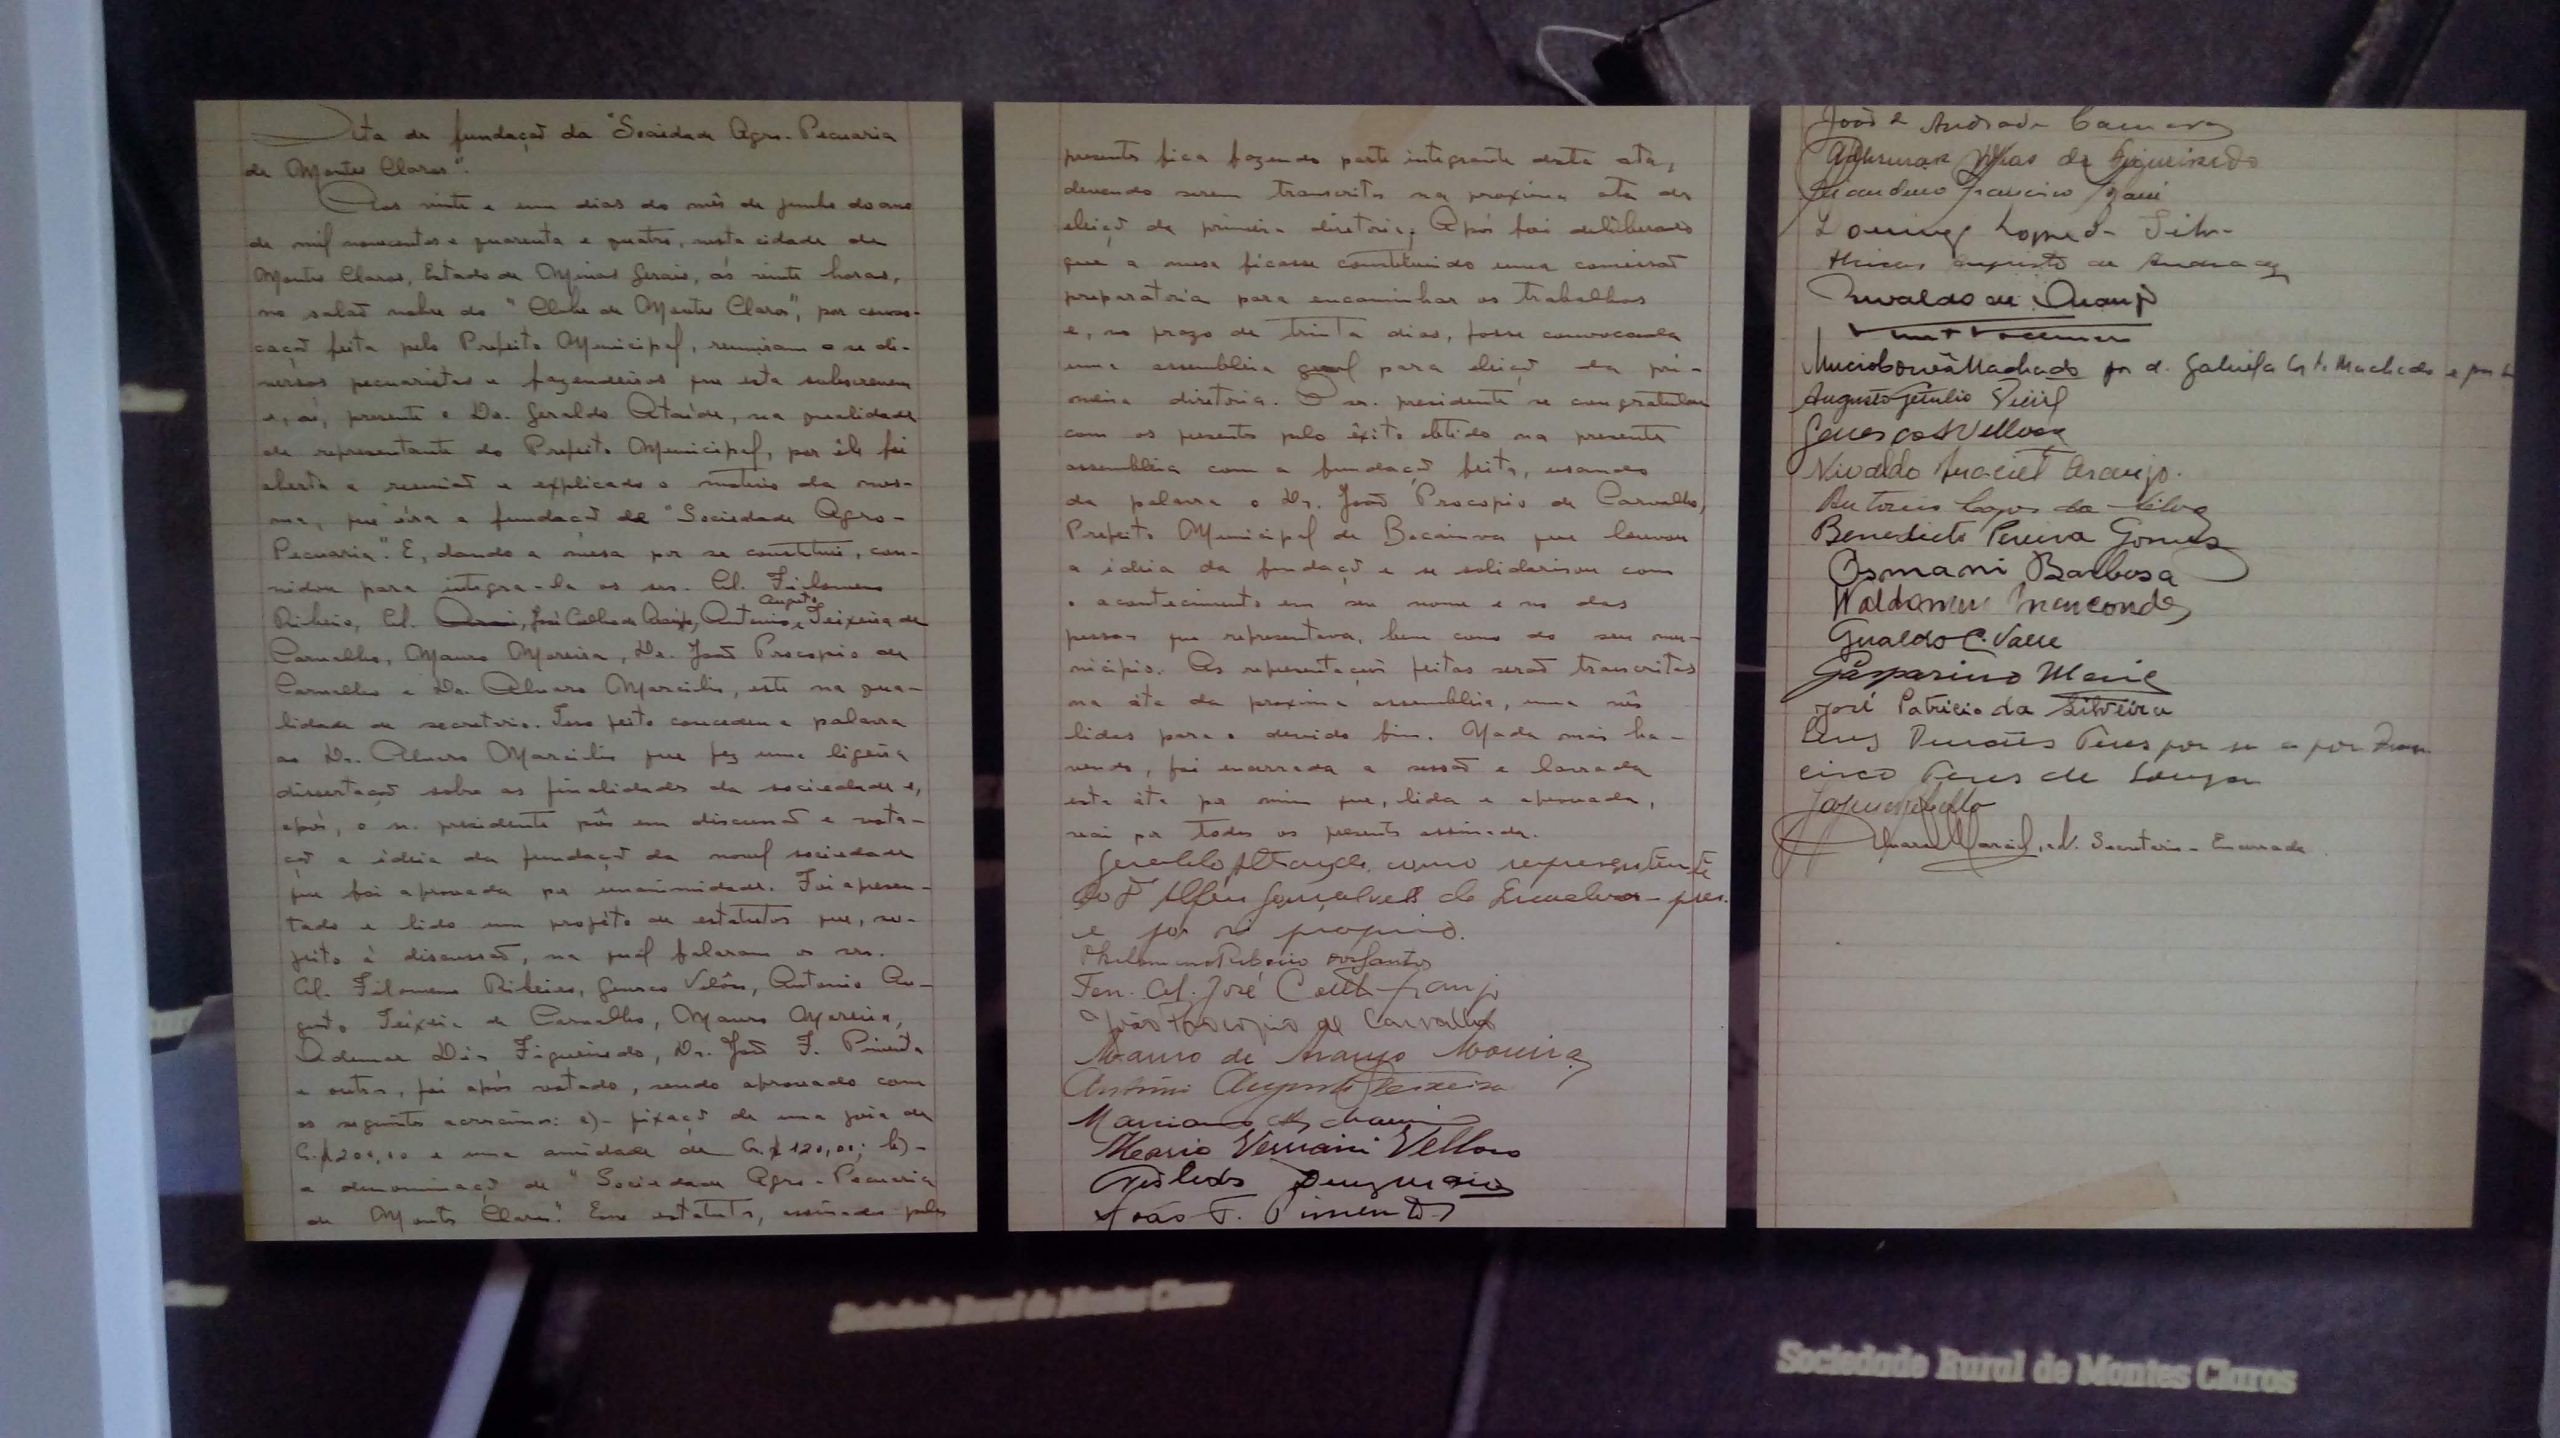 Ata de fundação da "Sociedade Agro-Pecuaria
de Montes Claros".
Aos vinte e um dias do mês de junho do ano
de mil novecentos e quarenta e quatro, nesta cidade de
Montes Claros, Estado de Minas Gerais, ás vinte horas,
no salão nobre do "Clube de Montes Claros", por convo-
cação feita pelo Prefeito Municipal, reuniram-se di-
versos pecuaristas e fazendeiros que esta subscrevem
e, aí, presente o Dr. Geraldo Ataíde, na qualidade
de representante do Prefeito Municipal, por êle foi
aberta a reunião e explicado o motivo da mes-
ma, que éra a fundação da "Sociedade Agro-
Pecuaria". E, dando a mesa por se constituir, con-
vidou para integra-la os srs. Cel. Filomeno
Ribeiro, Cel. José Coelho de Araujo, Antonio Augusto Teixeira de
Carvalho, Mauro Moreira, Dr. João Procopio de
Carvalho e Dr. Alvaro Marcilio, este na qua-
lidade de secretario. Isso feito concedeu a palavra
ao Dr. Alvaro Marcilio que fez uma ligeira
dissertação sobre as finalidades da sociedade e,
após, o sr. presidente pôs em discussão e vota-
ção a idéia da fundação da novel sociedade
que foi aprovada por unanimidade. Foi apresen-
tado e lido um projéto de estatutos que, su-
jeito á discussão, na qual falaram os srs.
Cel. Filomeno Ribeiro, Genesco Velôso, Antonio Au-
gusto Teixeira de Carvalho, Mauro Moreira,
Ademar Dias Figueiredo, Dr. João F. Pimenta
e outros, foi após votado, sendo aprovado com
os seguintes acrescimos: a)- fixação de uma joia de
Cr.$ 200,00 e uma anuidade de Cr.$ 120,00; b)-
a denominação de "Sociedade Agro-Pecuaria
de Montes Claros". Esse estatuto, assinado pelos
presentes fica fazendo parte integrante desta ata,
devendo serem transcritos na proxima ata de
eleição da primeira diretoria. Após foi deliberado
que a mesa ficasse constituindo uma comissão
preparatoria para encaminhar os trabalhos
e, no prazo de trinta dias, fosse convocada
uma assembléia geral para eleição da pri-
meira diretoria. O sr. presidente se congratulou
com os presentes pelo êxito obtido na presente
assembléia com a fundação feita, usando
da palavra o Dr. João Procopio de Carvalho,
Prefeito Municipal de Bocaiuva que louvou
a idéia da fundação e se solidarisou com
o acontecimento em seu nome e no das
pessoas que representava, bem como do seu mu-
nicipio. As representações feitas serão transcritas
na áta da proxima assembléia, uma vês
lidas para o devido fim. Nada mais ha-
vendo, foi encerrada a sessão e lavrada
esta áta por mim que, lida e aprovada,
vai por todos os presentes assinada.
Geraldo Athayde, como representante
do Alfeu Gonçalves de
e por si proprio.
Philomeno Ribeiro dos Santos
Ten. Cel. José Coelho Araujo
João Procopio de Carvalho
Mauro de Araujo Moreira
Antonio Augusto Teixeira
Mario Versiani Velloso
João F. Pimenta
João de Andrade Camara
Adhemar Dias de Figueiredo
Domingos Lopes da Silva
Augusto de Andrade
Nivaldo de Araujo
Machado por d. Gabriela Machado e por
Augusto Getulio
Genesco Velloso
Nivaldo Maciel Araujo.
Antonio Lopes da Silva
Benedicto Pereira Gomes
Osmani Barbosa
Waldomiro Marcondes
Geraldo C. Valle
Gasparino
José Patricio da Silveira
Peres por si e por Fran
cisco Peres de Souza
Alvaro Marcilio, Secretario - Encerrada
Sociedade Rural de Montes Claros
Sociedade Rural de Montes Claros